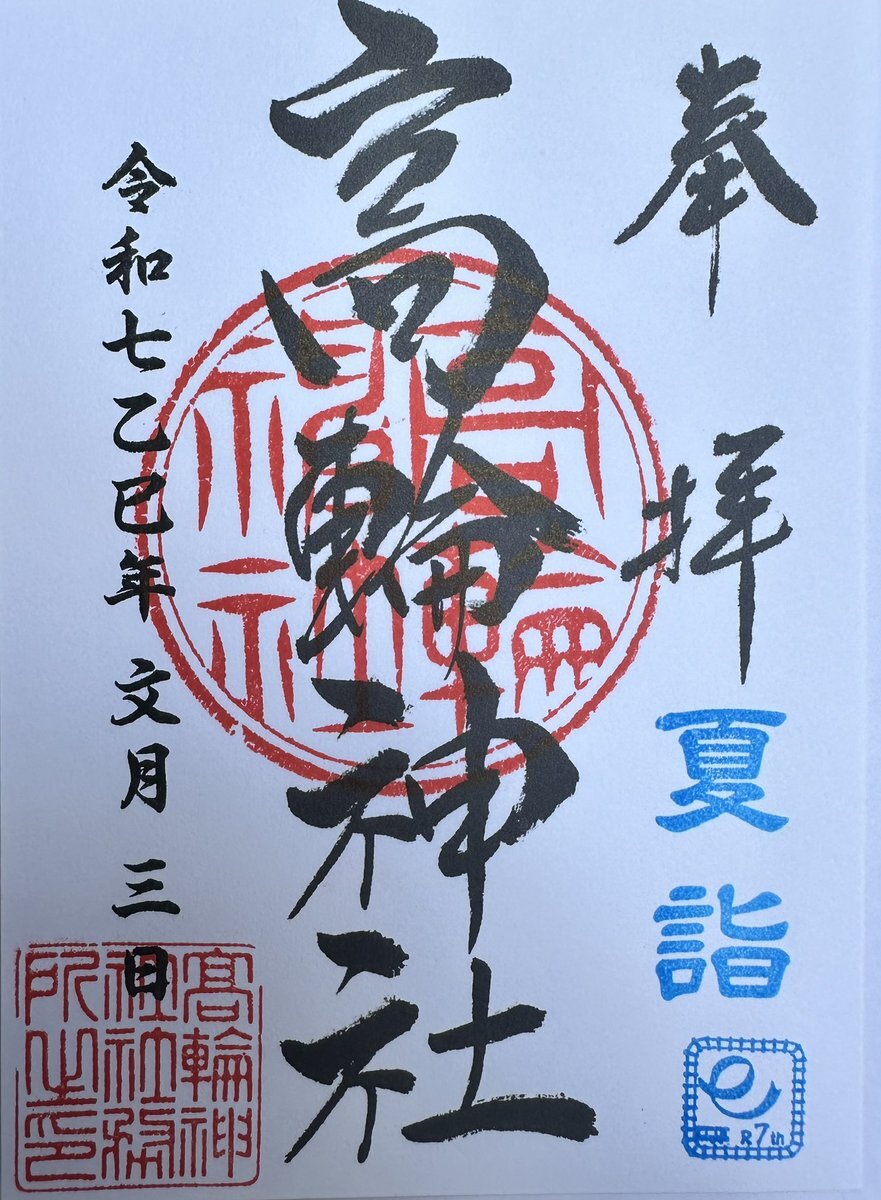 奉拝
夏詣
R7th
高輪神社
高輪神社
令和七乙巳年 文月 三日
髙輪神
社社務
所之印